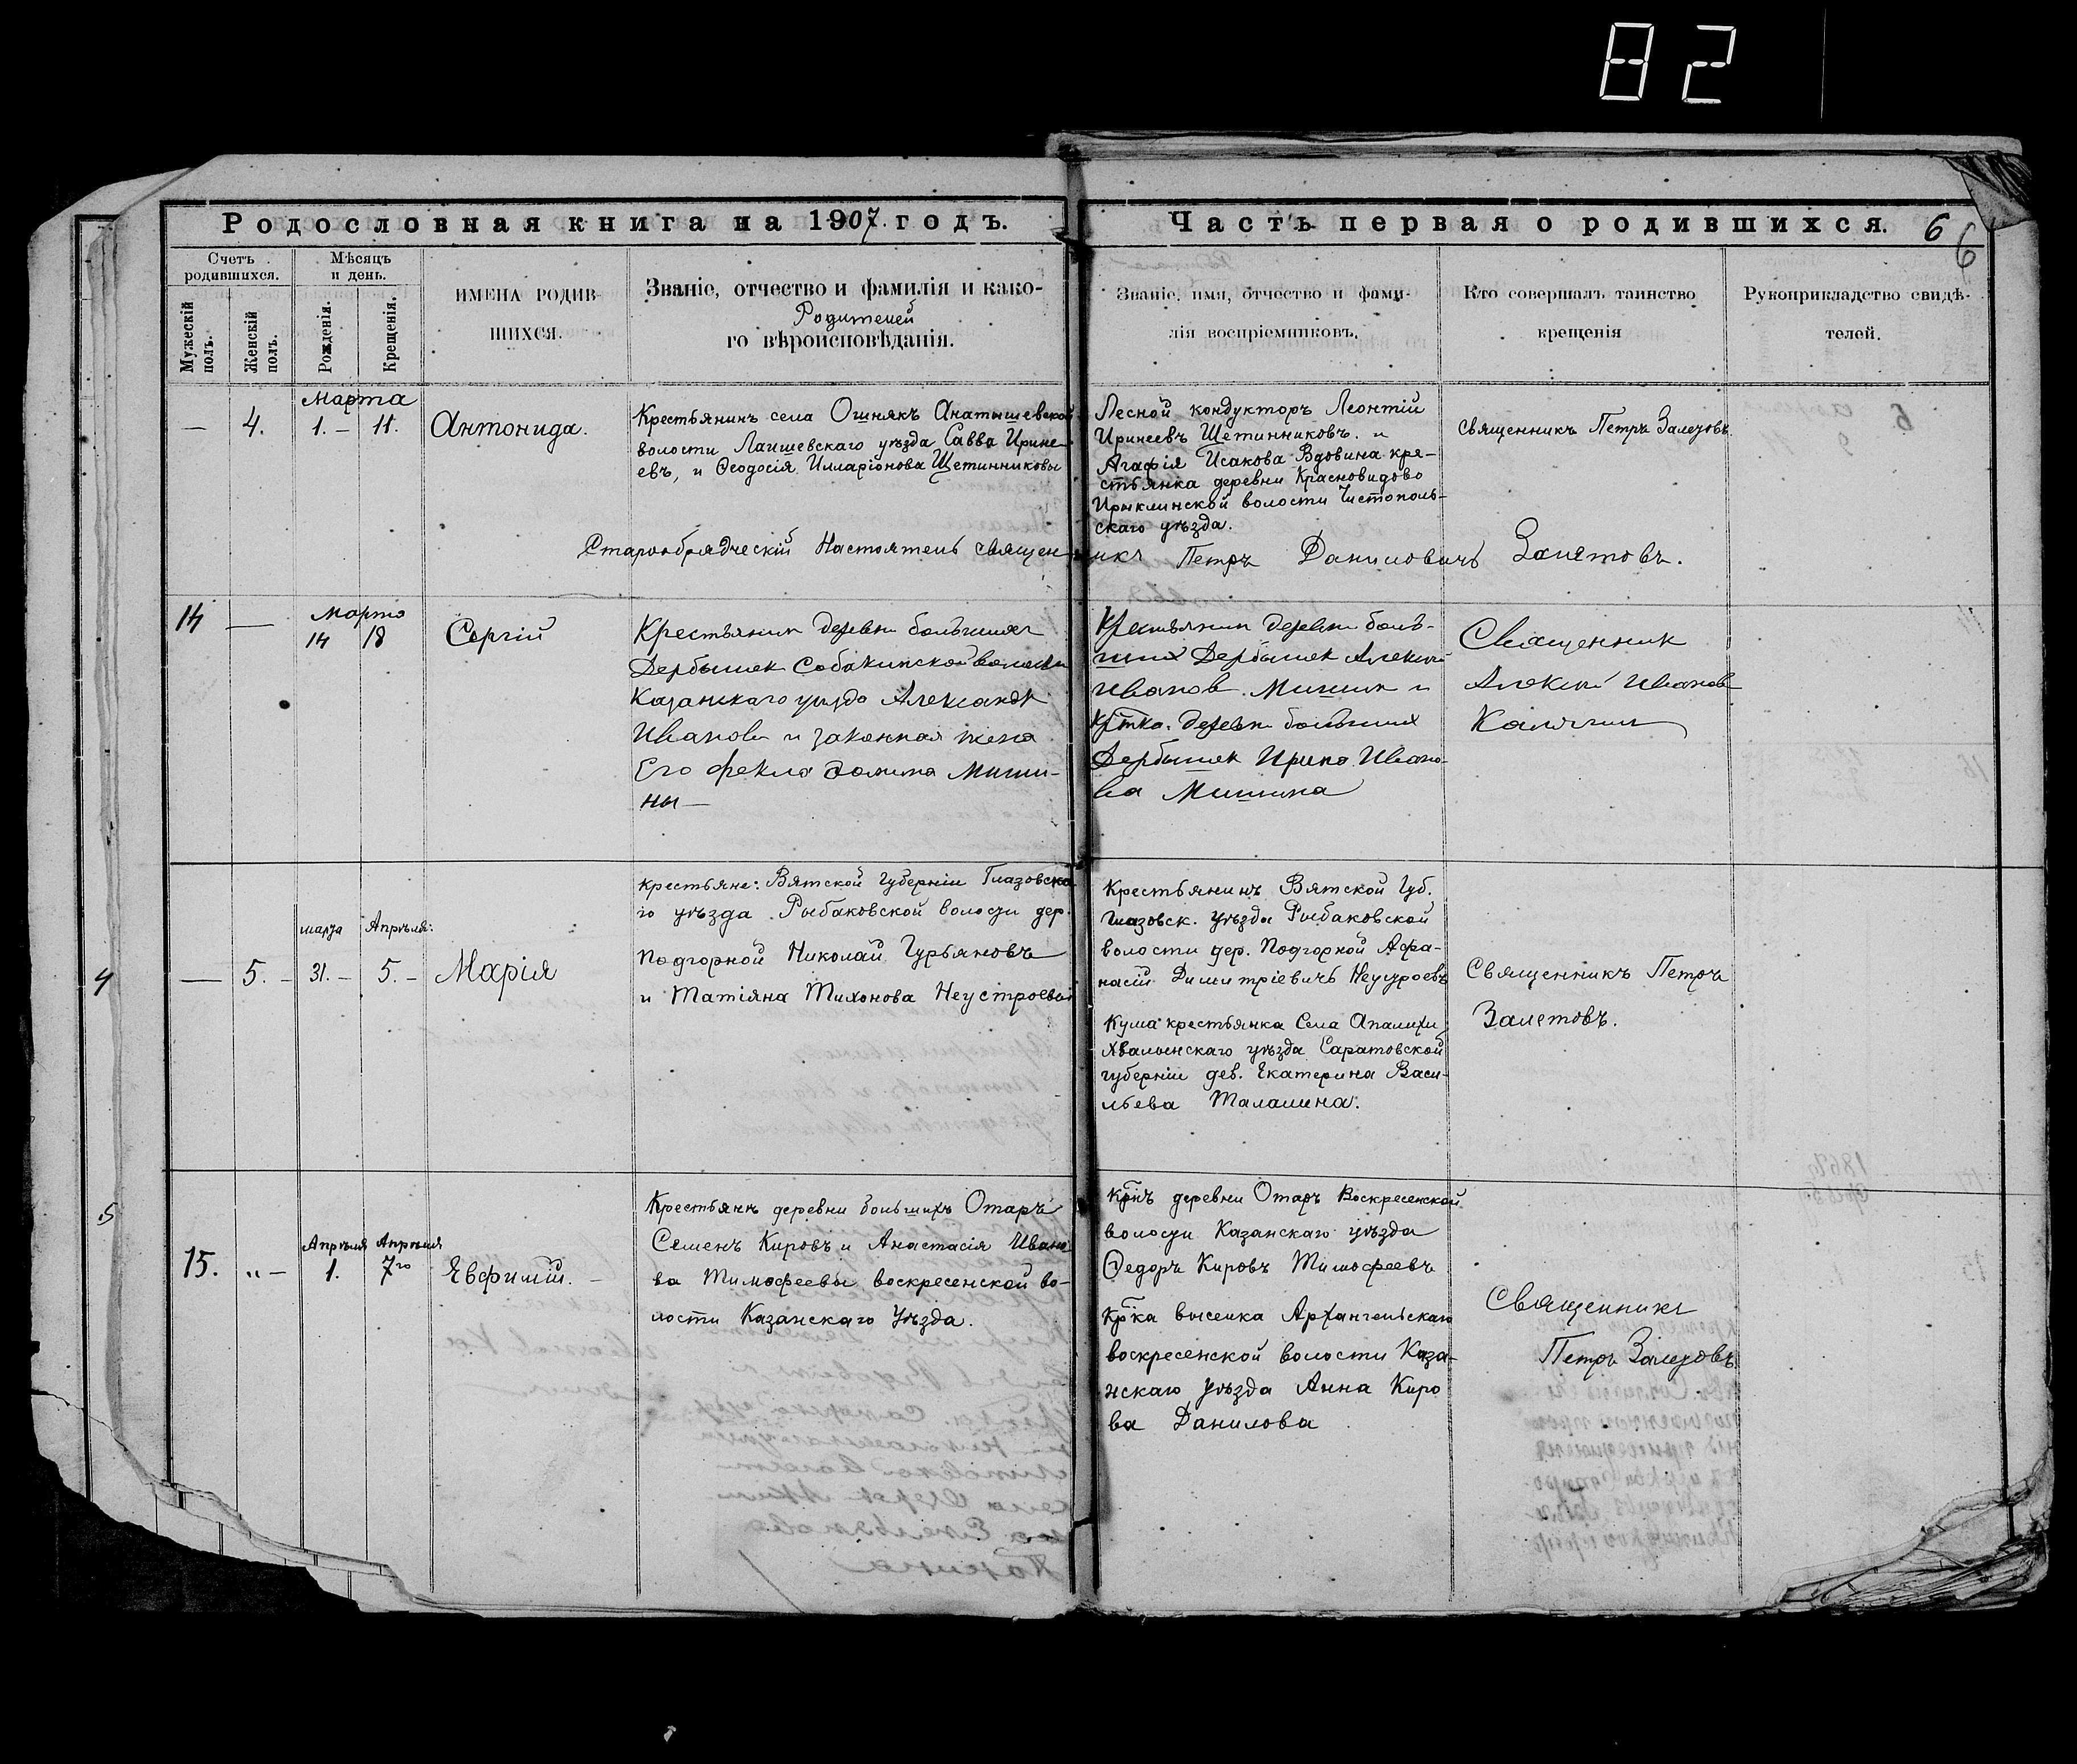 82
Родословная книга на 1907. годъ.
Часть первая о родившихся. 6
6
Счетъ родившихся.
Мѣсяцъ и день.
Мужескій полъ.
Женскій полъ.
Рожденія.
Крещенія.
ИМЕНА РОДИВ-
ШИХСЯ.
Званіе, отчество и фамилія и како-
Родителей
го вѣроисповѣданія.
Званіе, имя, отчество и фами-
лія воспріемниковъ.
Кто совершалъ таинство
крещенія
Рукоприкладство свидѣ-
телей.
Марта
— 4. 1. — 11. Антонида.
Крестьянинъ села Ошнякъ Анатышевской
волости Лаишевскаго уѣзда Савва Ирине-
евъ, и Ѳеодосія Илларіонова Щетинниковы
Лесной кондукторъ Леонтій
Иринеевъ Щетинниковъ. и
Агафія Исакова Вдовина кре-
стьянка деревни Красновидово
Ирыклинской волости Чистополь-
скаго уѣзда.
Священникъ Петръ Залетовъ
Старообрядческій Настоятель священникъ Петръ Даниловичъ Залетовъ.
Марта
14 — 14 18 Сергій
Крестьянин деревни большихъ
Дербышек Собакинской волости
Казанскаго уѣзда Александр
Иванов и законная жена
Его фекла Мишины
ны —
Крестьянин деревни боль-
ших Дербышек Алексий
Иванов Мишин и
Кр̃тка. деревни больших
Дербышек Ирина Ивано-
ва Мишина
Священник
Алексий Иванов
Калягин
4
марта Апрѣля:
— 5. — 31. — 5. — Марія
крестьяне: Вятской Губерніи Глазовска-
го уѣзда Рыбаковской волости дер.
Подгорной Николай Гурьяновъ
и Татіяна Тихонова Неустроевы
Крестьянинъ Вятской Губ.
Глазовск. уѣзда Рыбаковской
волости дер. Подгорной Афа-
насій Димитріевичъ Неустроевъ
Кума крестьянка Села Апалихи
Хвалынскаго уѣзда Саратовской
губерніи дев. Екатерина Васи-
льева Талалина.
Священникъ Петръ
Залетовъ.
5
Апрѣля Апрѣля
15. „ — 1. 7го Евфимій. —
Крестьянъ деревни большихъ Отаръ
Семенъ Кировъ и Анастасія Ивано
ва Тимофеевы воскресенской во-
лости Казанскаго Уѣзда.
Кр̃нъ деревни Отаръ Воскресенской
волости Казанскаго уѣзда
Ѳедоръ Кировъ Тимофеевъ
Кр̃ка выселка Архангельскаго
воскресенской волости Каза-
нскаго Уѣзда Анна Киро
ва Данилова
Священникъ
Петръ Залетовъ